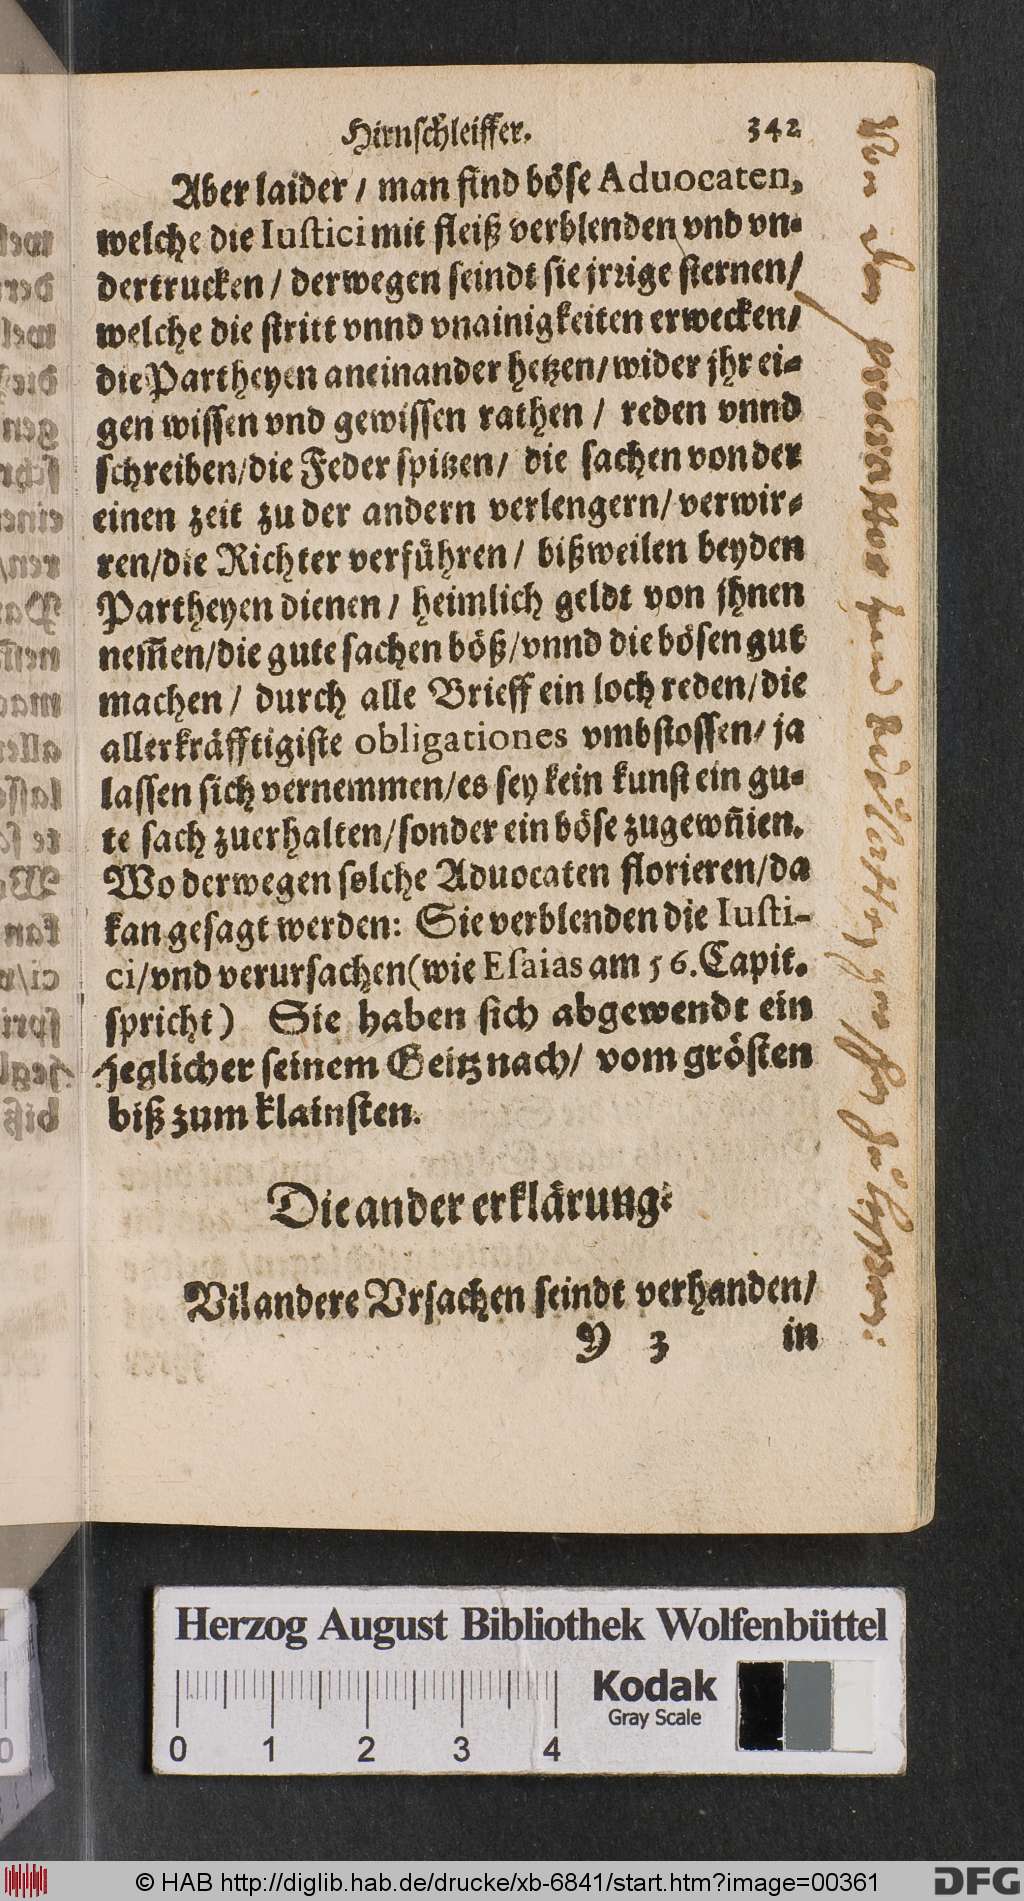 Hirnſchleiffer. 342
Aber laider / man find böſe Aduocaten,
welche die Iuſtici mit fleiß verblenden vnd vn-
dertrucken / derwegen ſeindt ſie jrrige ſternen /
welche die ſtritt vnnd vnainigkeiten erwecken /
die Partheyen aneinander hetzen / wider jhr ei-
gen wiſſen vnd gewiſſen rathen / reden vnnd
ſchreiben / die Feder ſpitzen / die ſachen von der
einen zeit zu der andern verlengern / verwir-
ren / die Richter verführen / bißweilen beyden
Partheyen dienen / heimlich geldt von jhnen
nem̃en / die gute ſachen böß / vnnd die böſen gut
machen / durch alle Brieff ein loch reden / die
allerkräfftigiſte obligationes vmbſtoſſen / ja
laſſen ſich vernemmen / es ſey kein kunſt ein gu-
te ſach zuerhalten / ſonder ein böſe zugewñien.
Wo derwegen ſolche Aduocaten florieren / da
kan geſagt werden: Sie verblenden die Iuſti-
ci / vnd verurſachen (wie Eſaias am 56. Capit.
ſpricht) Sie haben ſich abgewendt ein
jeglicher ſeinem Geitz nach / vom gröſten
biß zum klainſten.
Die ander erklärung:
Vil andere Vrſachen ſeindt verhanden /
Y 3 in
Von den procurattor
Herzog August Bibliothek Wolfenbüttel
Kodak
Gray Scale
0 1 2 3 4
© HAB http://diglib.hab.de/drucke/xb-6841/start.htm?image=00361
DFG